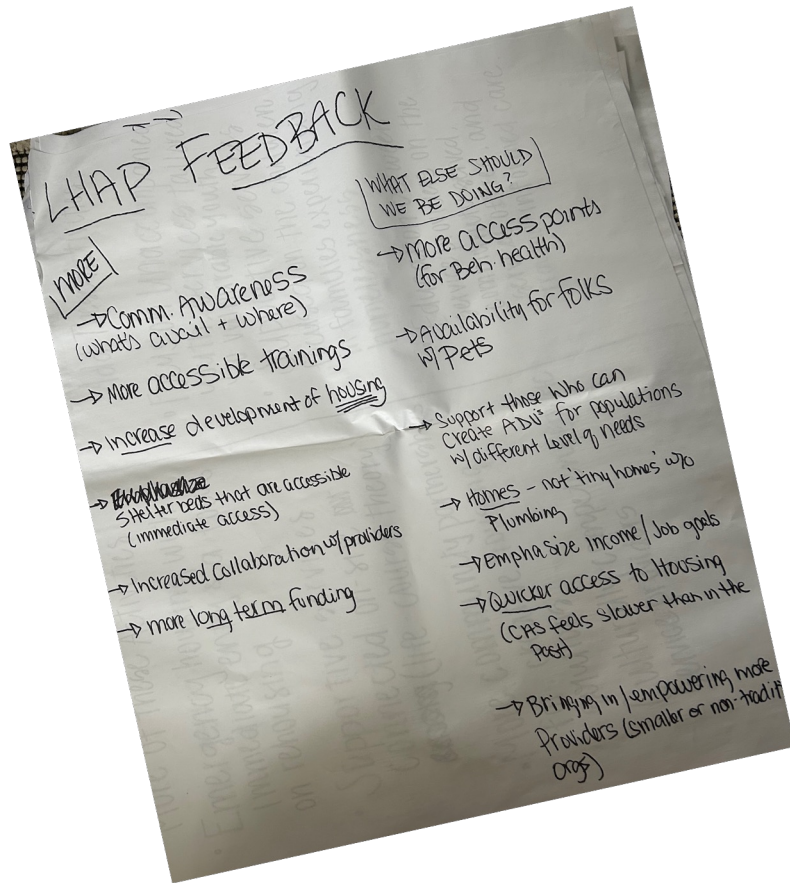 LHAP FEEDBACK
MORE
→ Comm. Awareness
(what's avail + where)
→ More accessible trainings
→ Increase development of housing
→ Shelter beds that are accessible
(immediate access)
→ Increased Collaboration w/ providers
→ more long term funding
WHAT ELSE SHOULD
WE BE DOING?
→ More access points
(for Beh. health)
→ Availability for folks
w/ Pets
→ Support those who can
create ADU's for populations
w/ different level of needs
→ Homes - not 'tiny homes' w/o
Plumbing
→ Emphasize Income/Job goals
→ Quicker access to Housing
(CAS feels slower than in the
Past)
→ Bringing in/empowering more
Providers (smaller or non-tradit
orgs)